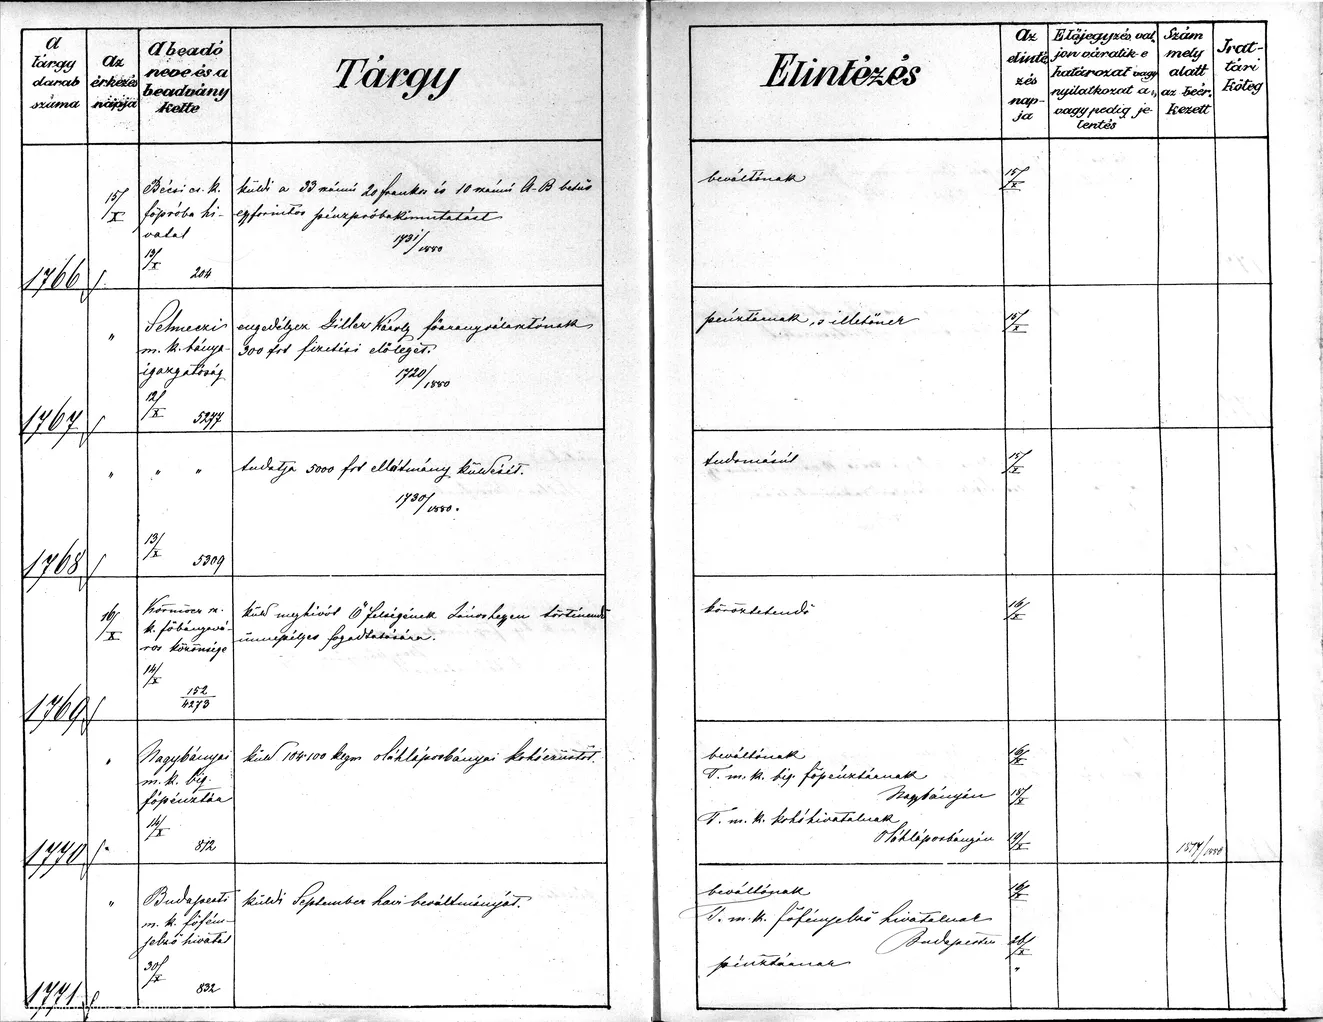 A
tárgy
darab
száma
Az
érkezés
napja
A beadó
neve és a
beadvány
kelte
Tárgy
Elintézés
Az
elinté
zés
nap-
ja
Előjegyzés, val-
jon váratik-e
határozat vagy
nyilatkozat a-,
vagy pedig je-
lentés
Szám
mely
alatt
az beér-
kezett
Irat-
tári
köteg
1766
15/X
Bécsi cs. k.
főpróba hi-
vatal
13/X
204
küldi a 33 számú 20 frankos és 10 számú A-B betüs
egyforintos pénzpróbakimutatást
1731/1880
beváltónak
15/X
1767
"
Selmeczi
m. k. bánya-
igazgatóság
12/X
5277
engedélyez Giller Károly főaranyválasztónak
300 frt fizetési előleget.
1720/1880
pénztárnak, s illetőnek
15/X
1768
" " "
13/X
5309
tudatja 5000 frt ellátmány küldését.
1730/1880.
tudomásúl
15/X
1769
16/X
Körmöcz sz.
k. főbányavá-
ros közönsége
14/X
152/4273
küld meghivót Ő felségének Jánoshegyen történendő
ünnepélyes fogadtatására.
köröztetendő
16/X
1770
"
Nagybányai
m. k. big.
főpénztár
14/X
812
küld 104·100 kgm oláhláposbányai kohóezüstöt.
beváltónak
T. m. k. big. főpénztárnak
Nagybányán
T. m. k. kohóhivatalnak
Oláhláposbányán
16/X
15/X
19/X
1771
"
Budapesti
m. k. főfém-
jelző hivatal
30/X
832
küldi September havi beváltmányát.
beváltónak
T. m. k. főfémjelző hivatalnak
Budapesten
pénztárnak
16/X
26/X
"